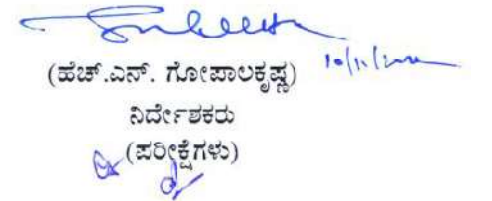 (ಹೆಚ್.ಎನ್. ಗೋಪಾಲಕೃಷ್ಣ)
ನಿರ್ದೇಶಕರು
(ಪರೀಕ್ಷೆಗಳು)